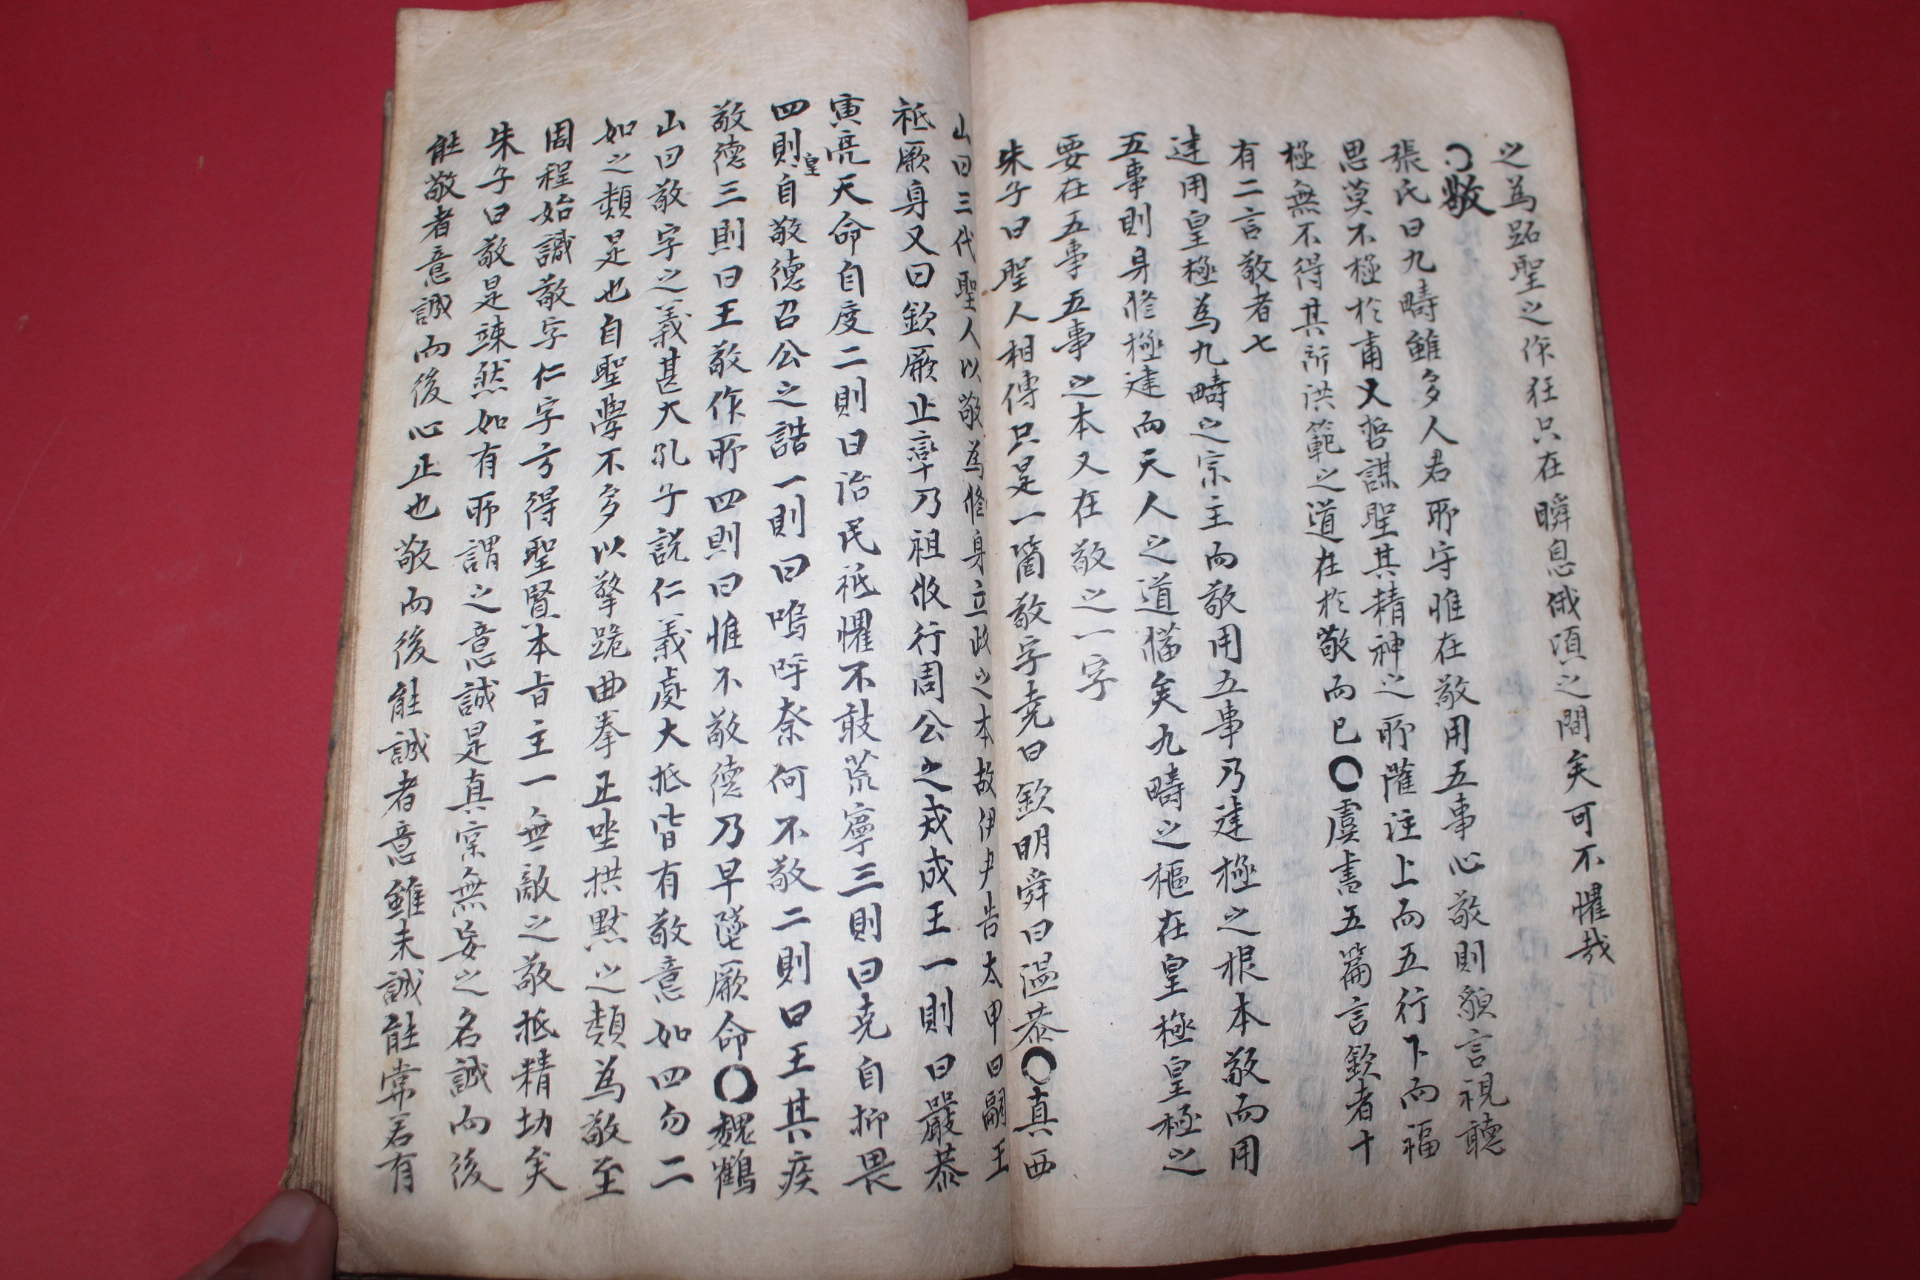 之為跖聖之作狂只在瞬息俄頃之間矣可不懼哉
○敬
張氏曰九疇雖多人君所守惟在敬用五事心敬則貌言視聽
思莫不極於肅乂哲謀聖其精神之所薩注上而五行下而福
極無不得其所洪範之道在於敬而已○虞書五篇言欽者十
有二言敬者七
建用皇極為九疇之宗主而敬用五事乃建極之根本敬而用
五事則身修極建而天人之道備矣九疇之樞在皇極皇極之
要在五事五事之本又在敬之一字
朱子曰聖人相傳只是一箇敬字堯曰欽明舜曰溫恭○真西
山曰三代聖人以敬為修身立政之本故伊尹告太甲曰嗣王
祗厥身又曰欽厥止率乃祖攸行周公之戒成王一則曰嚴恭
寅亮天命自度二則曰治民祗懼不敢荒寧三則曰克自抑畏
四則皇自敬德召公之誥一則曰嗚呼奈何不敬二則曰王其疾
敬德三則曰王敬作所四則曰惟不敬德乃早墜厥命○魏鶴
山曰敬字之義甚大孔子說仁義處大抵皆有敬意如四勿二
如之類是也自聖學不多以擎跪曲拳正坐拱默之類為敬至
周程始識敬字仁字方得聖賢本旨主一無敵之敬抵精切矣
朱子曰敬是竦然如有所謂之意誠是真寀無妄之名誠而後
能敬者意誠而後心正也敬而後能誠者意雖未誠能常若有